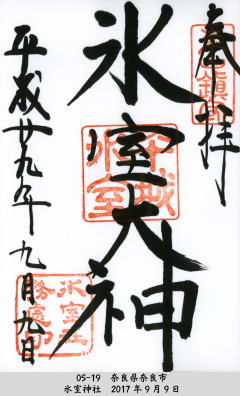 奉拝
氷室大神
平成廿九年九月九日
05-19 奈良県奈良市
氷室神社 2017年9月9日